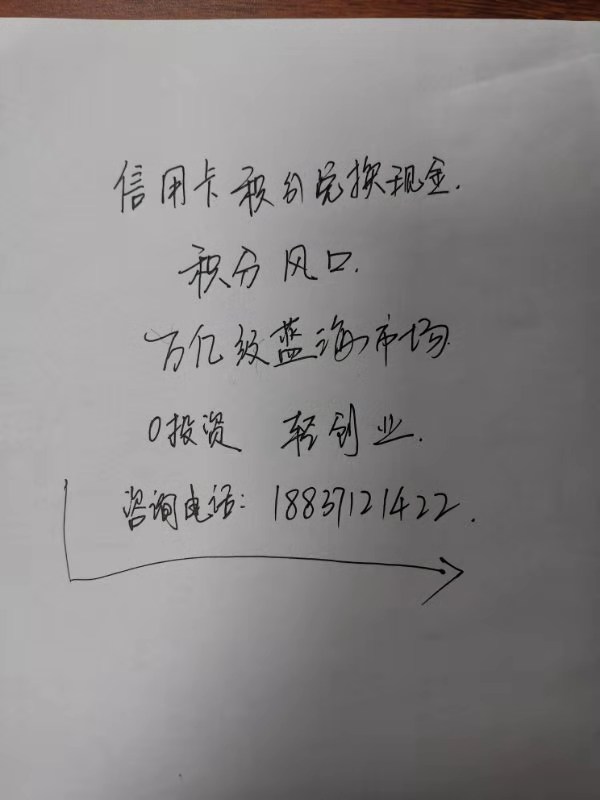 信用卡积分兑换现金.
积分风口.
万亿级蓝海市场
0投资 轻创业.
咨询电话: 18837121422.